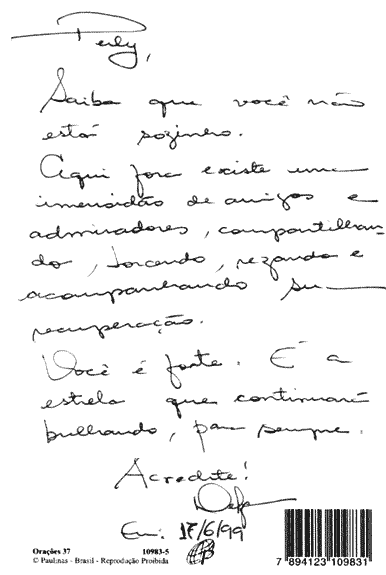 Perly,
Saiba que você não
está sozinho.
Aqui fora existe uma
imensidão de amigos e
admiradores, compartilhan-
do, torcendo, rezando e
acompanhando sua
recuperação.
Você é forte. É a
estrela que continuará
brilhando, para sempre.
Acredite!
Em: 17/6/99
Orações 37 10983-5
© Paulinas - Brasil - Reprodução Proibida
7 894123 109831